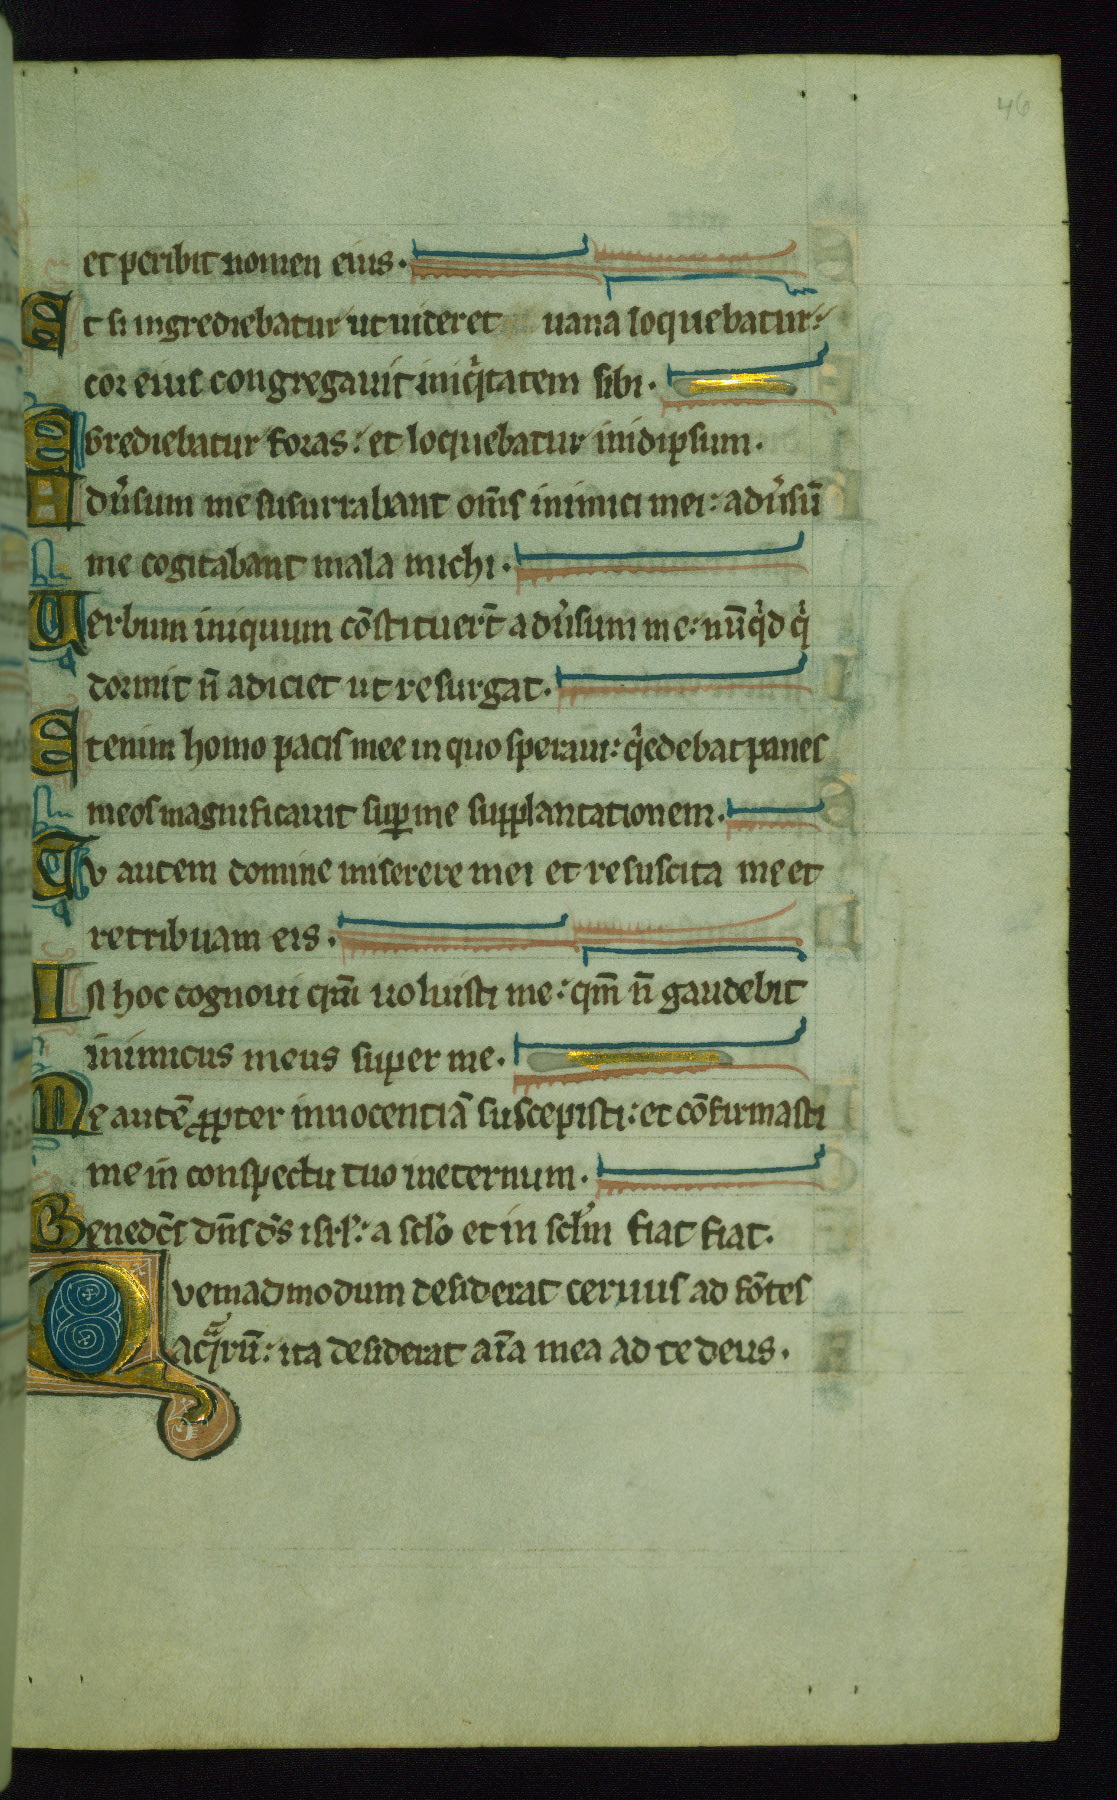 46
et peribit nomen eius.
Et si ingrediebatur ut uideret uana loquebatur:
cor eius congregauit iniqͥtatem sibi.
Egrediebatur foras: et loquebatur inidipsum.
Adũsum me susurrabant om̄s inimici mei: adũsū
me cogitabant mala michi.
Uerbum iniquum cōstituer̄t adũsum me: nūqͥd qͥ
dormit n̄ adiciet ut resurgat.
Etenim homo pacis mee in quo speraui: qͥ edebat panes
meos magnificauit suꝑ me supplantationem.
Tv autem domine miserere mei et resuscita me et
retribuam eis.
In hoc cognoui qm̄ uoluisti me: qm̄ n̄ gaudebit
inimicus meus super me.
Me autē ꝓpter innocentiā suscepisti: et cōfirmasti
me in conspectu tuo ineternum.
Benedc̄s dn̄s d̄s isrł: a scło et in scłm fiat fiat.
Qvemadmodum desiderat ceruus ad fōtes
aqͣrū: ita desiderat aīa mea ad te deus.